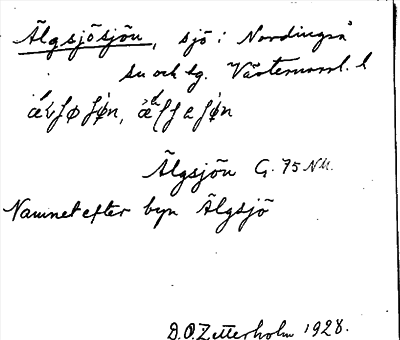 Älgsjösjön, sjö i Nordingrå
sn och tg. Västernorrl. l
Älgsjön G. 75 NV.
Namnet efter byn Älgsjö
D.O. Zetterholm 1928.